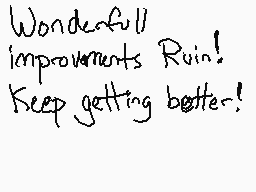 Wonderfull
improvments Ruin!
Keep getting better!